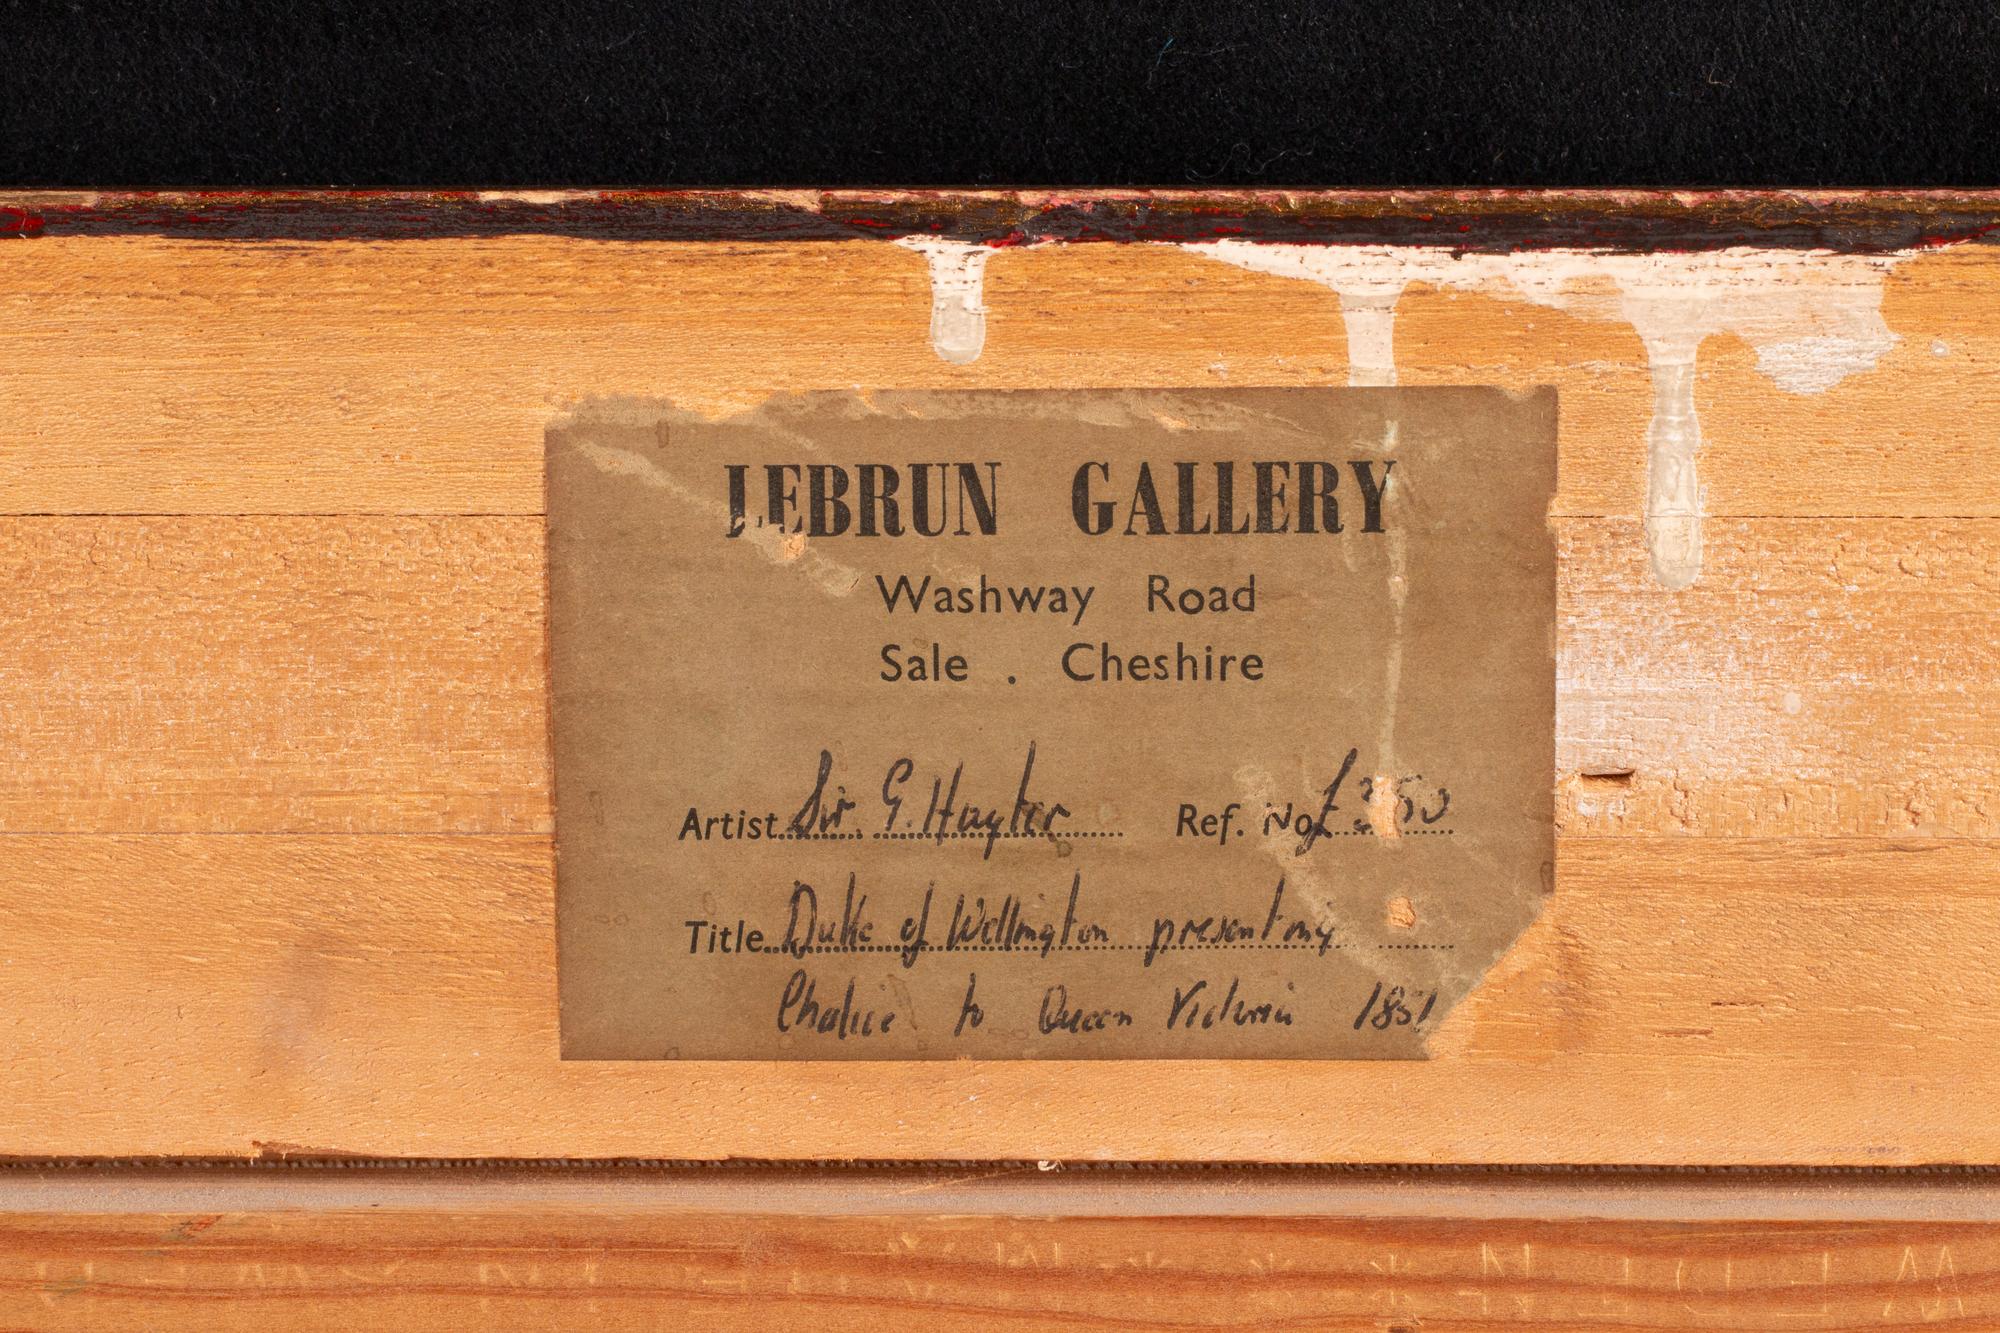 LEBRUN GALLERY
Washway Road
Sale . Cheshire
Artist Sir G. Hayter Ref. No £350
Title Duke of Wellington presenting
Chalice to Queen Victoria 1851